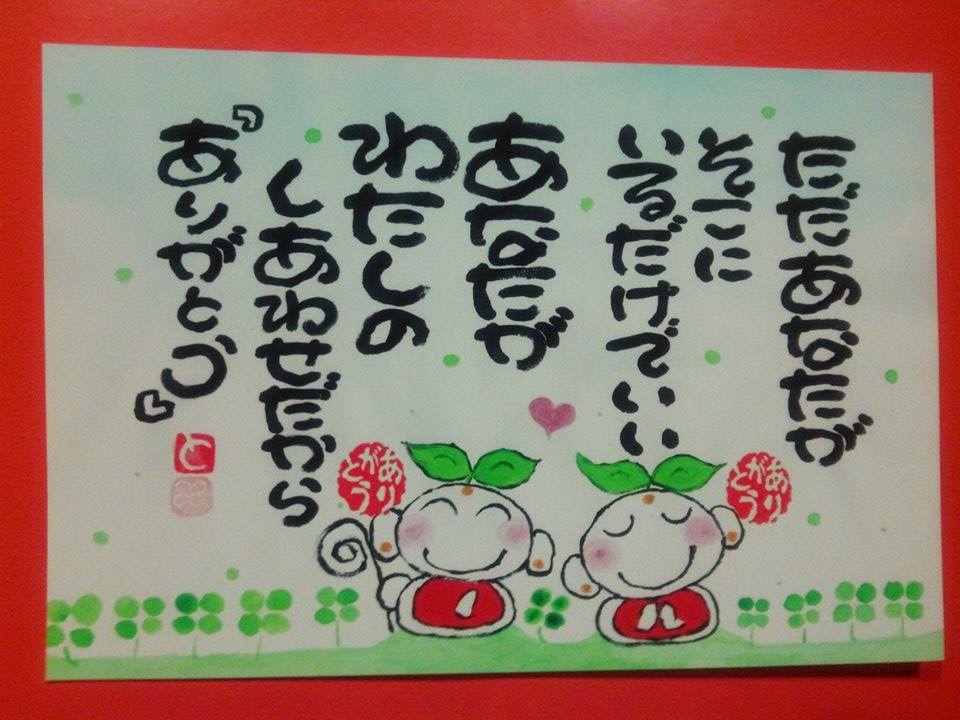 ただあなたが
そこに
いるだけでいい
あなたが
わたしの
しあわせだから
『ありがとう』
と
ありがとう
ありがとう